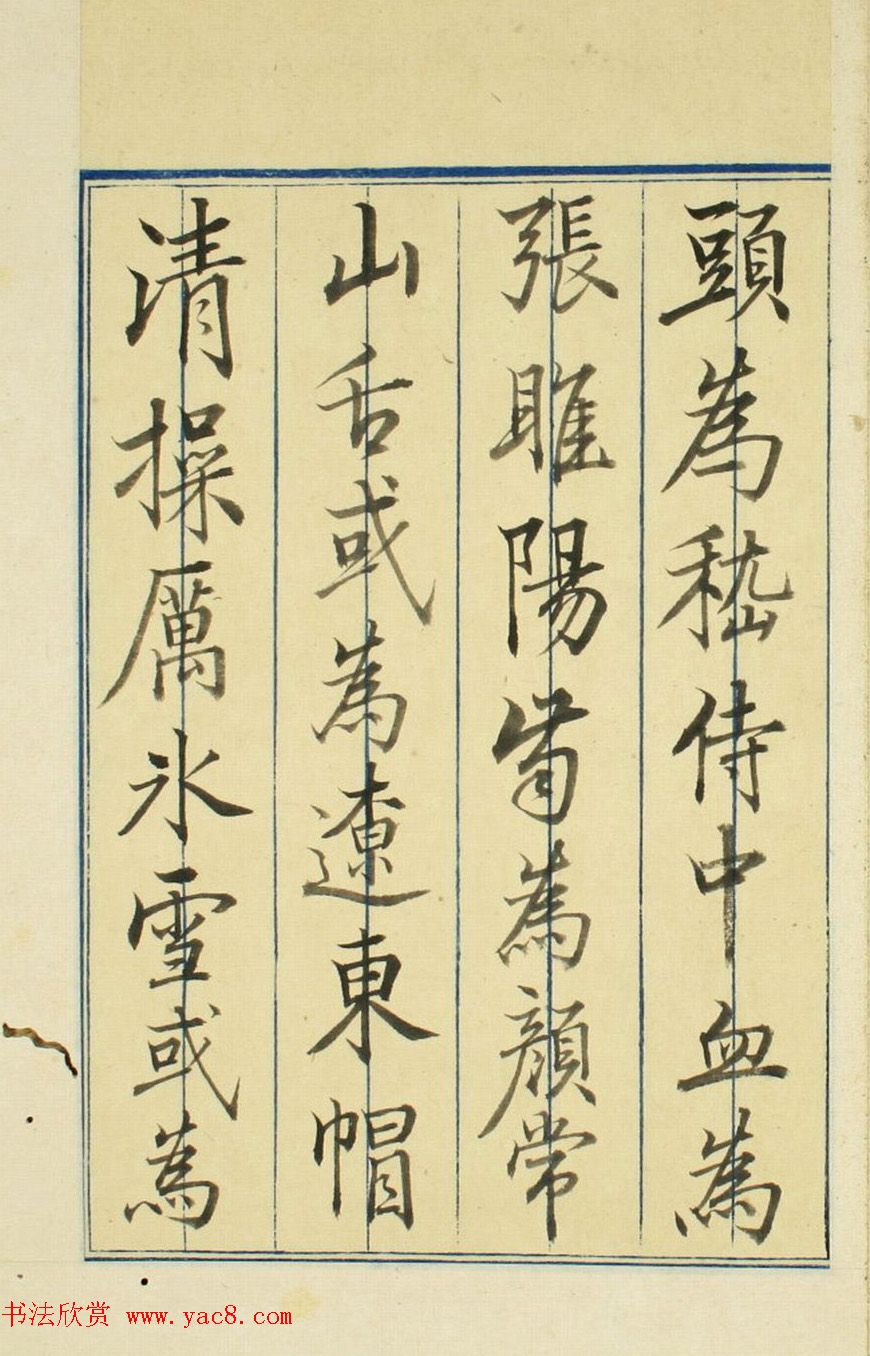 頭為嵇侍中血為
張睢陽齒為顏常
山舌或為遼東帽
清操厲冰雪或為
书法欣赏 www.yac8.com